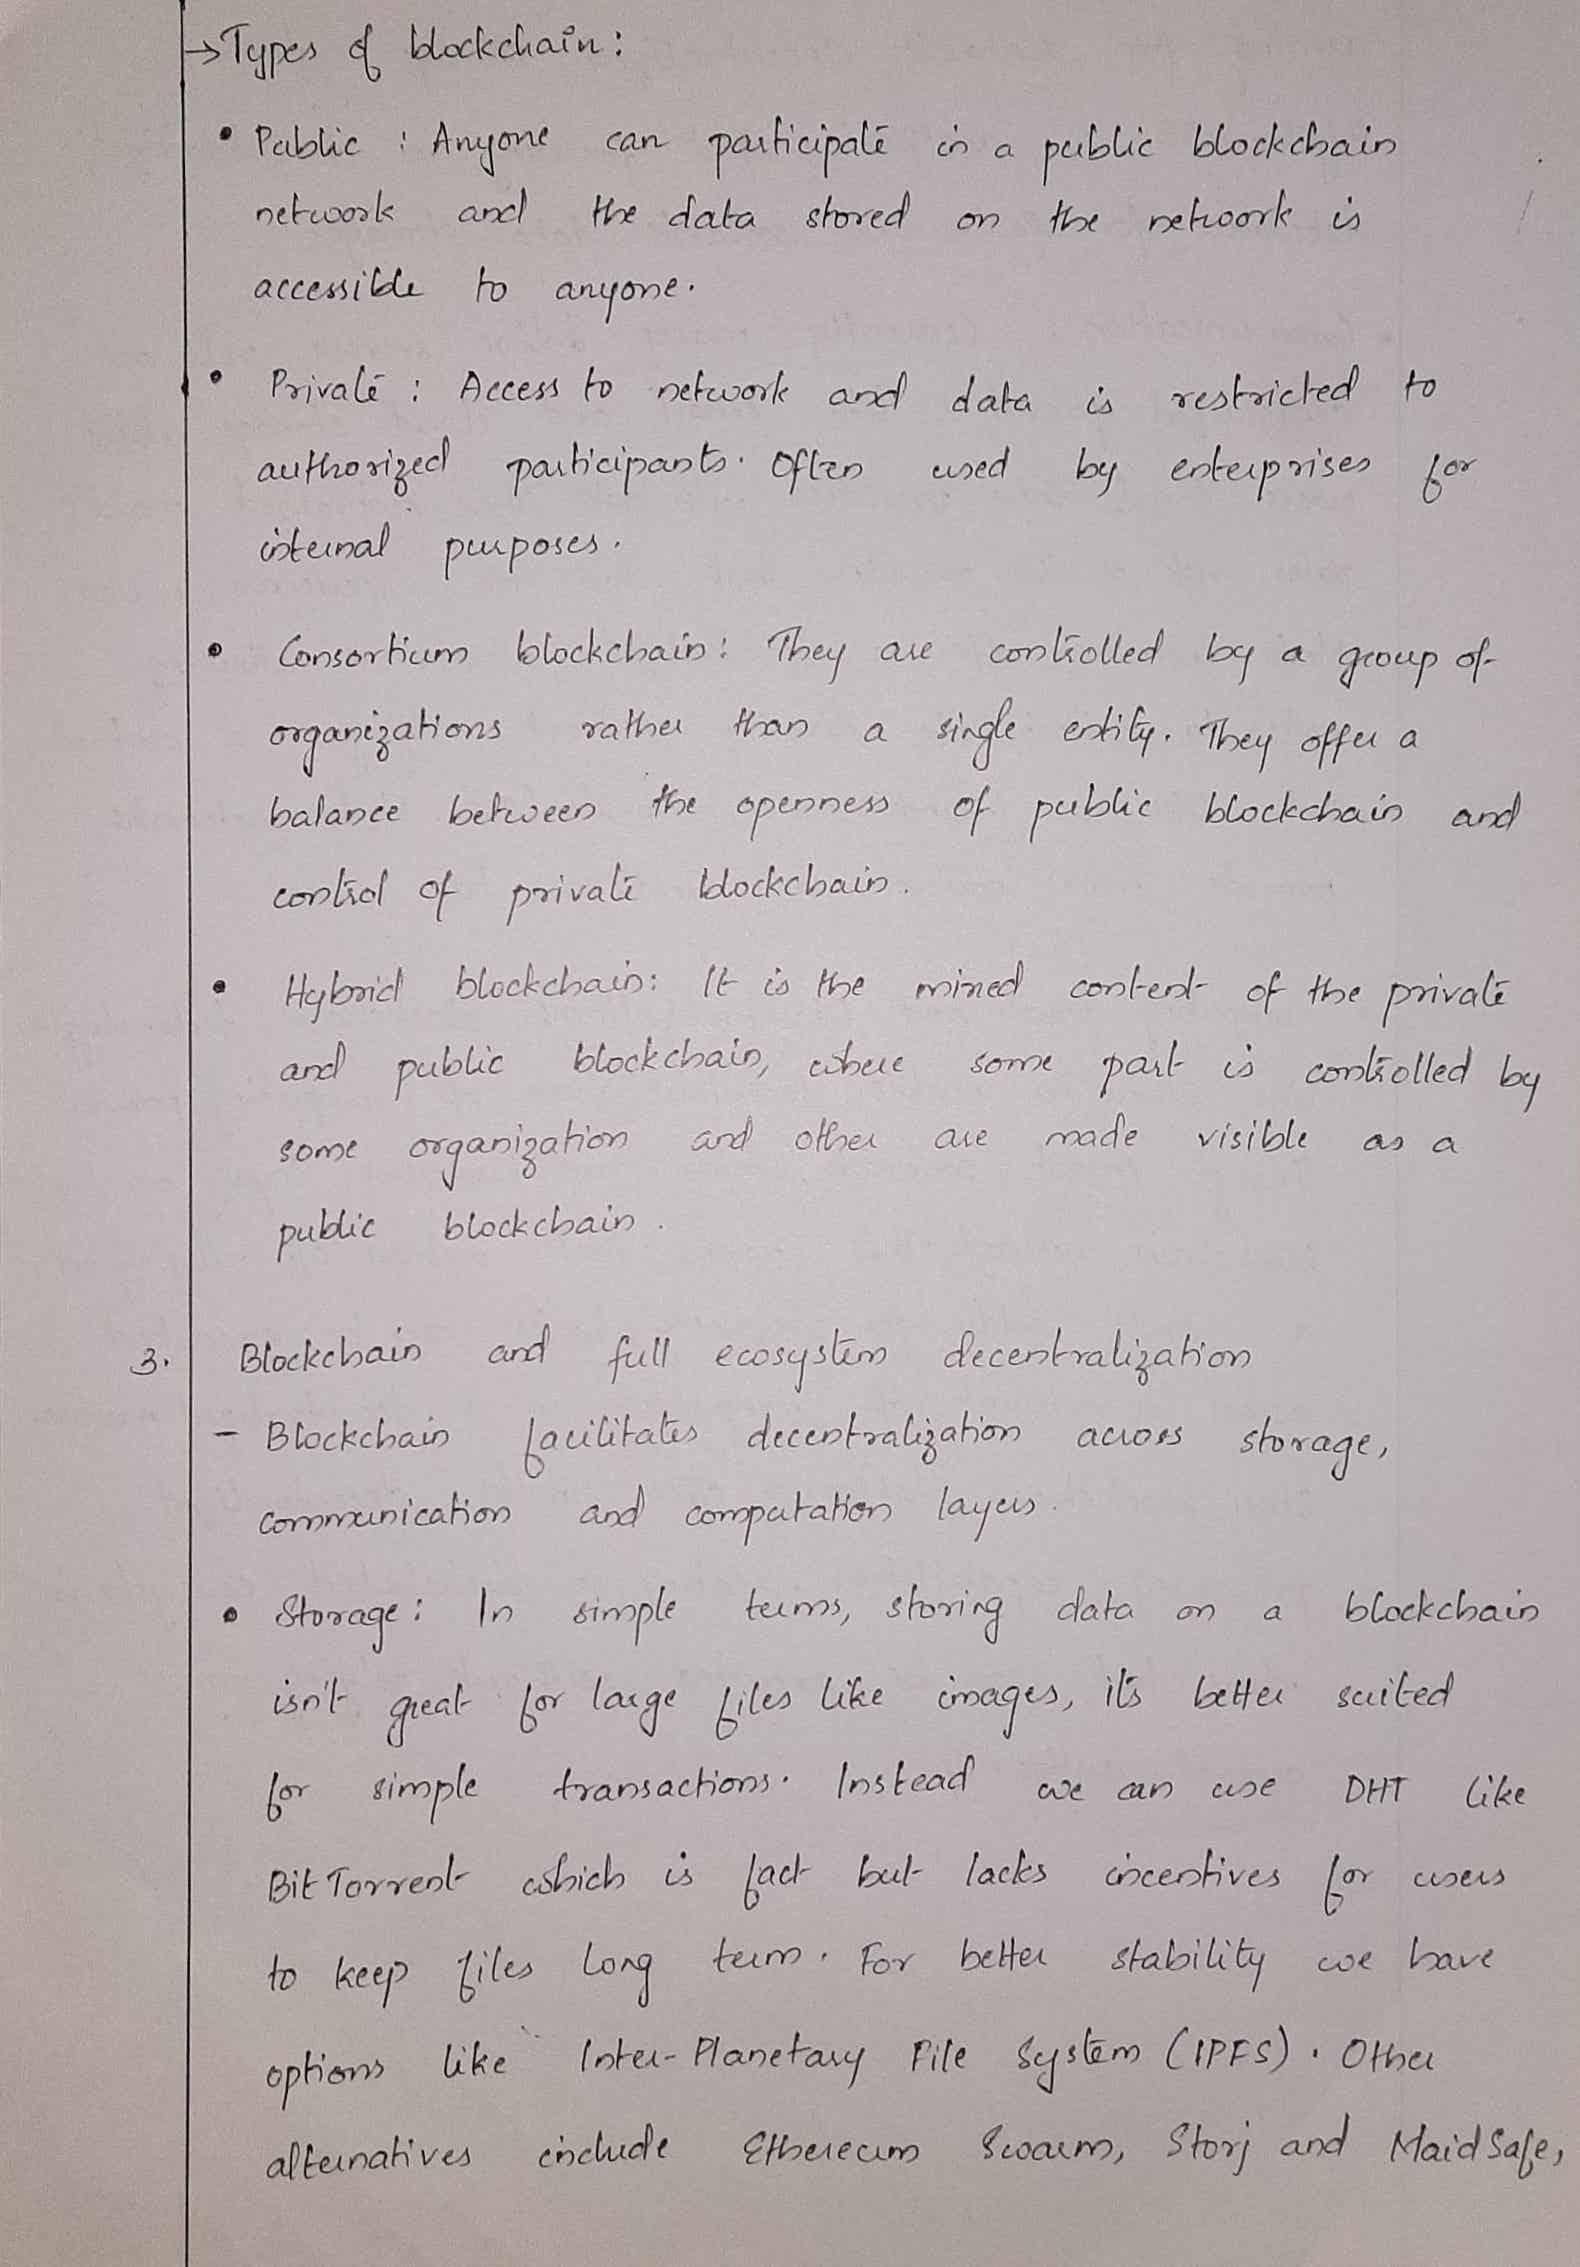 → Types of blockchain:
• Public : Anyone can participate in a public blockchain
network and the data stored on the network is
accessible to anyone.
• Private : Access to network and data is restricted to
authorized participants. Often used by enterprises for
internal purposes.
• Consortium blockchain: They are controlled by a group of
organizations rather than a single entity. They offer a
balance between the openness of public blockchain and
control of private blockchain.
• Hybrid blockchain: It is the mixed content of the private
and public blockchain, where some part is controlled by
some organization and other are made visible as a
public blockchain.
3. Blockchain and full ecosystem decentralization
- Blockchain facilitates decentralization across storage,
communication and computation layers.
• Storage: In simple terms, storing data on a blockchain
isn't great for large files like images, it's better suited
for simple transactions. Instead we can use DHT like
BitTorrent which is fact but lacks incentives for users
to keep files long term. For better stability we have
options like Inter-Planetary File System (IPFS). Other
alternatives include Ethereum Swarm, Storj and MaidSafe,